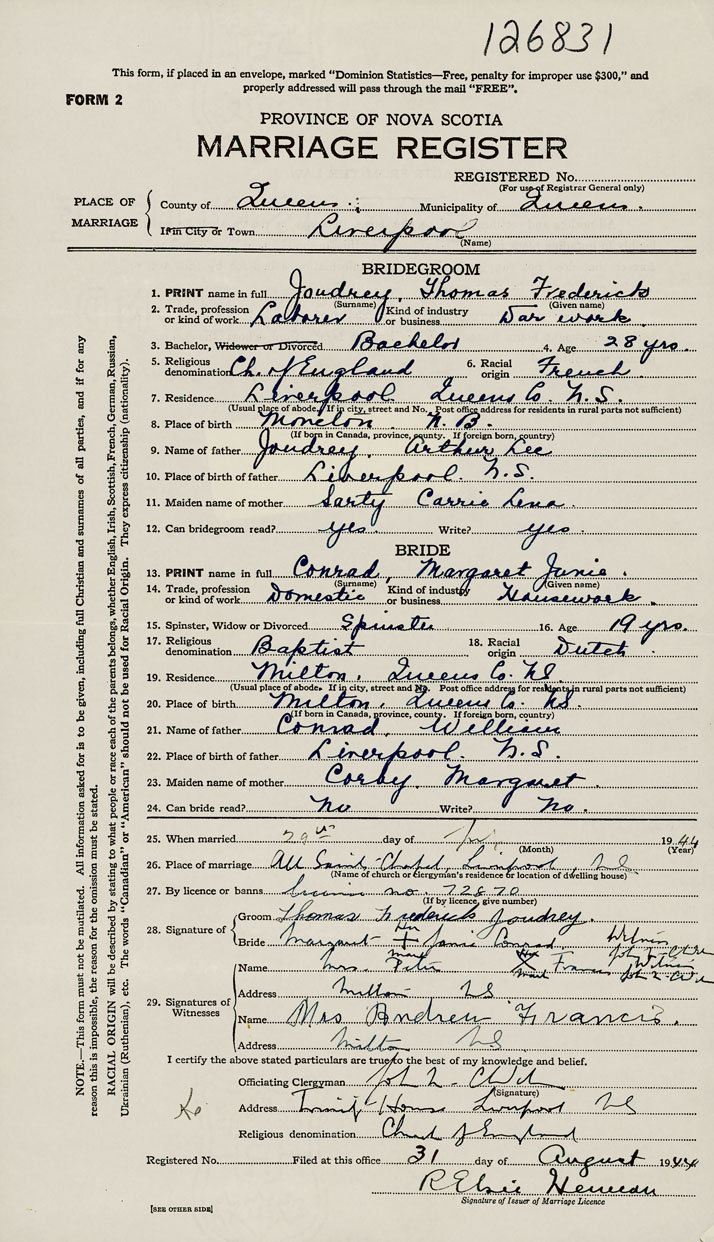 126831
This form, if placed in an envelope, marked "Dominion Statistics—Free, penalty for improper use $300," and
properly addressed will pass through the mail "FREE".
FORM 2
PROVINCE OF NOVA SCOTIA
MARRIAGE REGISTER
REGISTERED No.
(For use of Registrar General only)
PLACE OF MARRIAGE
County of Queens Municipality of Queens.
If in City or Town Liverpool
(Name)
BRIDEGROOM
1. PRINT name in full Joudrey, Thomas Frederick
(Surname) (Given name)
2. Trade, profession or kind of work Laborer Kind of industry or business War work.
3. Bachelor, Widower or Divorced Bachelor 4. Age 28 yrs.
5. Religious denomination Ch. of England 6. Racial origin French.
7. Residence Liverpool Queens Co. N.S.
(Usual place of abode. If in city, street and No. Post office address for residents in rural parts not sufficient)
8. Place of birth Moncton. N.B.
(If born in Canada, province, county. If foreign born, country)
9. Name of father Joudrey, Arthur Lee
10. Place of birth of father Liverpool. N.S.
11. Maiden name of mother Sarty Carrie Lena.
12. Can bridegroom read? yes. Write? yes.
BRIDE
13. PRINT name in full Conrad, Margaret Janie.
(Surname) (Given name)
14. Trade, profession or kind of work Domestic Kind of industry or business Housework.
15. Spinster, Widow or Divorced Spinster 16. Age 19 yrs.
17. Religious denomination Baptist 18. Racial origin Dutch.
19. Residence Milton, Queens Co. N.S.
(Usual place of abode. If in city, street and No. Post office address for residents in rural parts not sufficient)
20. Place of birth Milton, Queens Co. N.S.
(If born in Canada, province, county. If foreign born, country)
21. Name of father Conrad, William
22. Place of birth of father Liverpool. N.S.
23. Maiden name of mother Corby, Margaret.
24. Can bride read? No Write? No.
25. When married 29th day of 1944
(Month) (Year)
26. Place of marriage All Saints Chapel, Liverpool, NS
(Name of church or clergyman's residence or location of dwelling house)
27. By licence or banns licence no. 72870
(If by licence, give number)
28. Signature of
Groom Thomas Frederick Joudrey.
Bride Margaret her + mark Janie Conrad. Witness
29. Signatures of Witnesses
Name Mrs. Peter her X mark Francis Witness
Address Milton NS
Name Mrs Andrew Francis.
Address Milton NS
I certify the above stated particulars are true to the best of my knowledge and belief.
Officiating Clergyman John
(Signature)
Address Trinity House Liverpool NS
Religious denomination Church of England
Registered No. Filed at this office 31 day of August 1944
R Elsie
Signature of Issuer of Marriage Licence
[SEE OTHER SIDE]
NOTE.—This form must not be mutilated. All information asked for is to be given, including full Christian and surnames of all parties, and if for any
reason this is impossible, the reason for the omission must be stated.
RACIAL ORIGIN will be described by stating to what people or race each of the parents belongs, whether English, Irish, Scottish, French, German, Russian,
Ukrainian (Ruthenian), etc. The words "Canadian" or "American" should not be used for Racial Origin. They express citizenship (nationality).